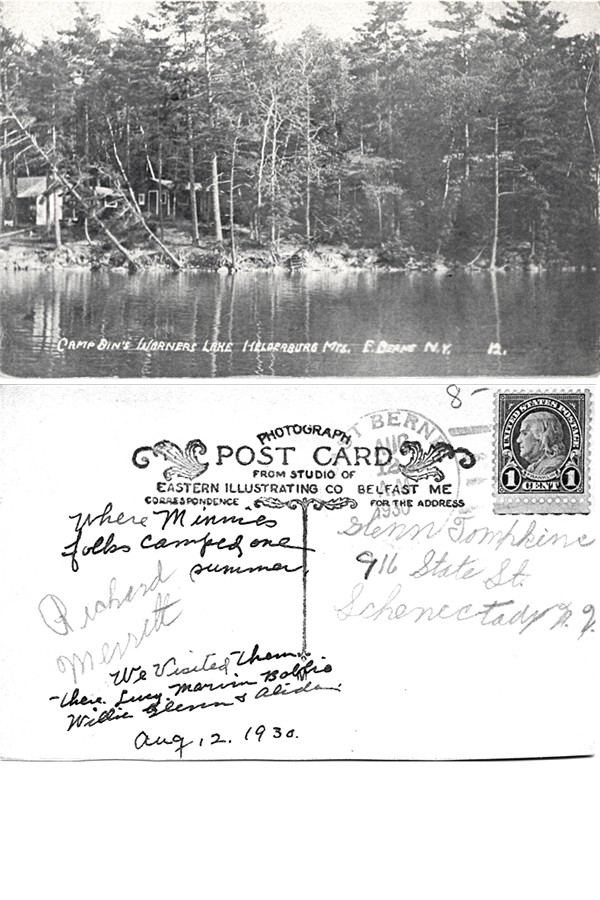 CAMP BIN'S WARNERS LAKE HELDERBURG MTS. E. BERNE N.Y. 12.
8-
ST BERNE
AUG
1930
UNITED STATES POSTAGE
1 1
CENT
PHOTOGRAPH
POST CARD
FROM STUDIO OF
EASTERN ILLUSTRATING CO BELFAST ME
CORRESPONDENCE FOR THE ADDRESS
Where Minnies
folks camped one
summer.
Richard
Merrett
We Visited them
there. Lucy. Marvin
Willie Glenn & Alida.
Aug, 12. 1930.
Glenn Tompkins
916 State St.
Schenectady N. Y.